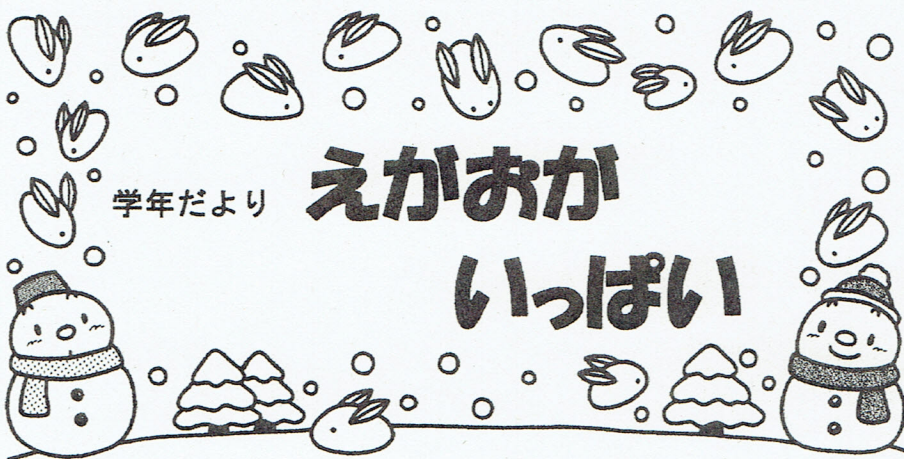 学年だより えがおが
いっぱい